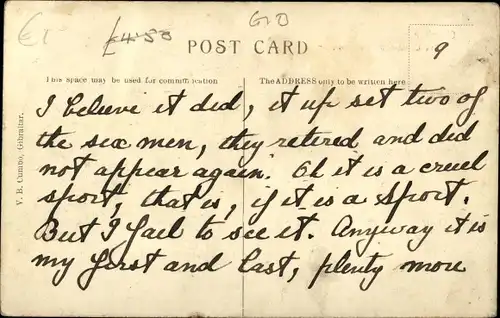 £1 £4.50 GIO
POST CARD 9
This space may be used for communication The ADDRESS only to be written here
V. B. Cumbo, Gibraltar.
I believe it did, it up set two of
the six men, they retired and did
not appear again. Oh it is a cruel
sport, that is, if it is a sport.
But I fail to see it. Anyway it is
my first and last, plenty more